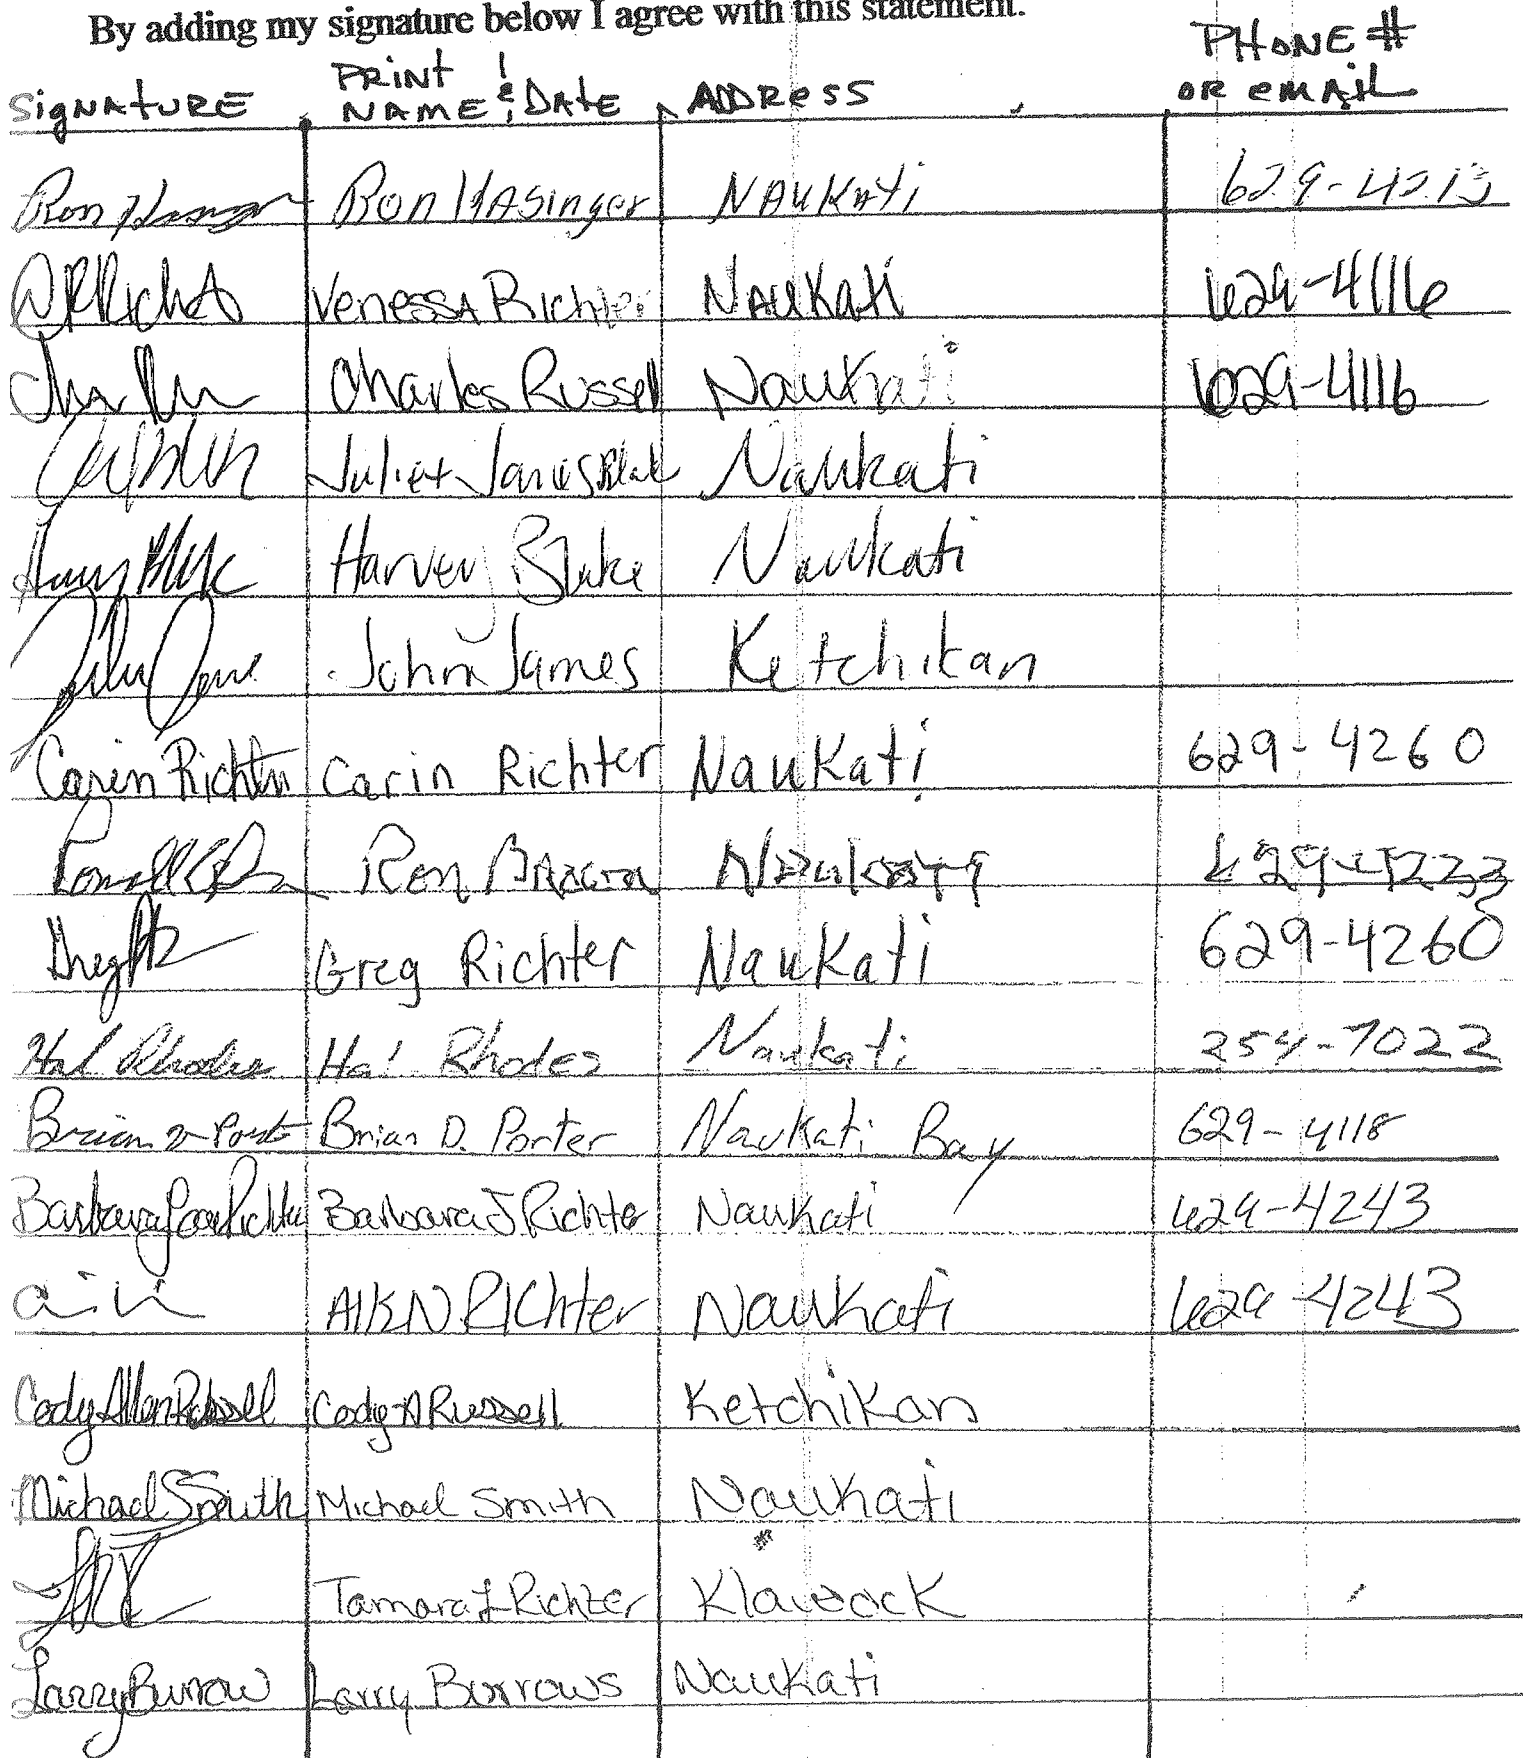 By adding my signature below I agree with this statement.
SigNAtURE PRiNt NAME & DAtE ADDRess PHONE # OR eMAiL
Ron HASinger NAUKAti
VenessA Richter NAUKAti 629-4116
Charles Russell Naukati 629-4116
Juliet James Blake Naukati
Harvey Blake Naukati
John James Ketchikan
Carin Richter Carin Richter Naukati 629-4260
Ron
Greg Richter Naukati 629-4260
Hal Rhodes Hal Rhodes Naukati 254-7022
Brian D Porter Brian D. Porter Naukati Bay 629-4118
Barbara Joan Richter Barbara J Richter Naukati 629-4243
RIChter Naukati 629-4243
Cody Allen Russell Cody A Russell Ketchikan
Michael S Smith Michael Smith Naukati
Tamara L Richter Klawock
Larry Burrow Larry Burrows Naukati